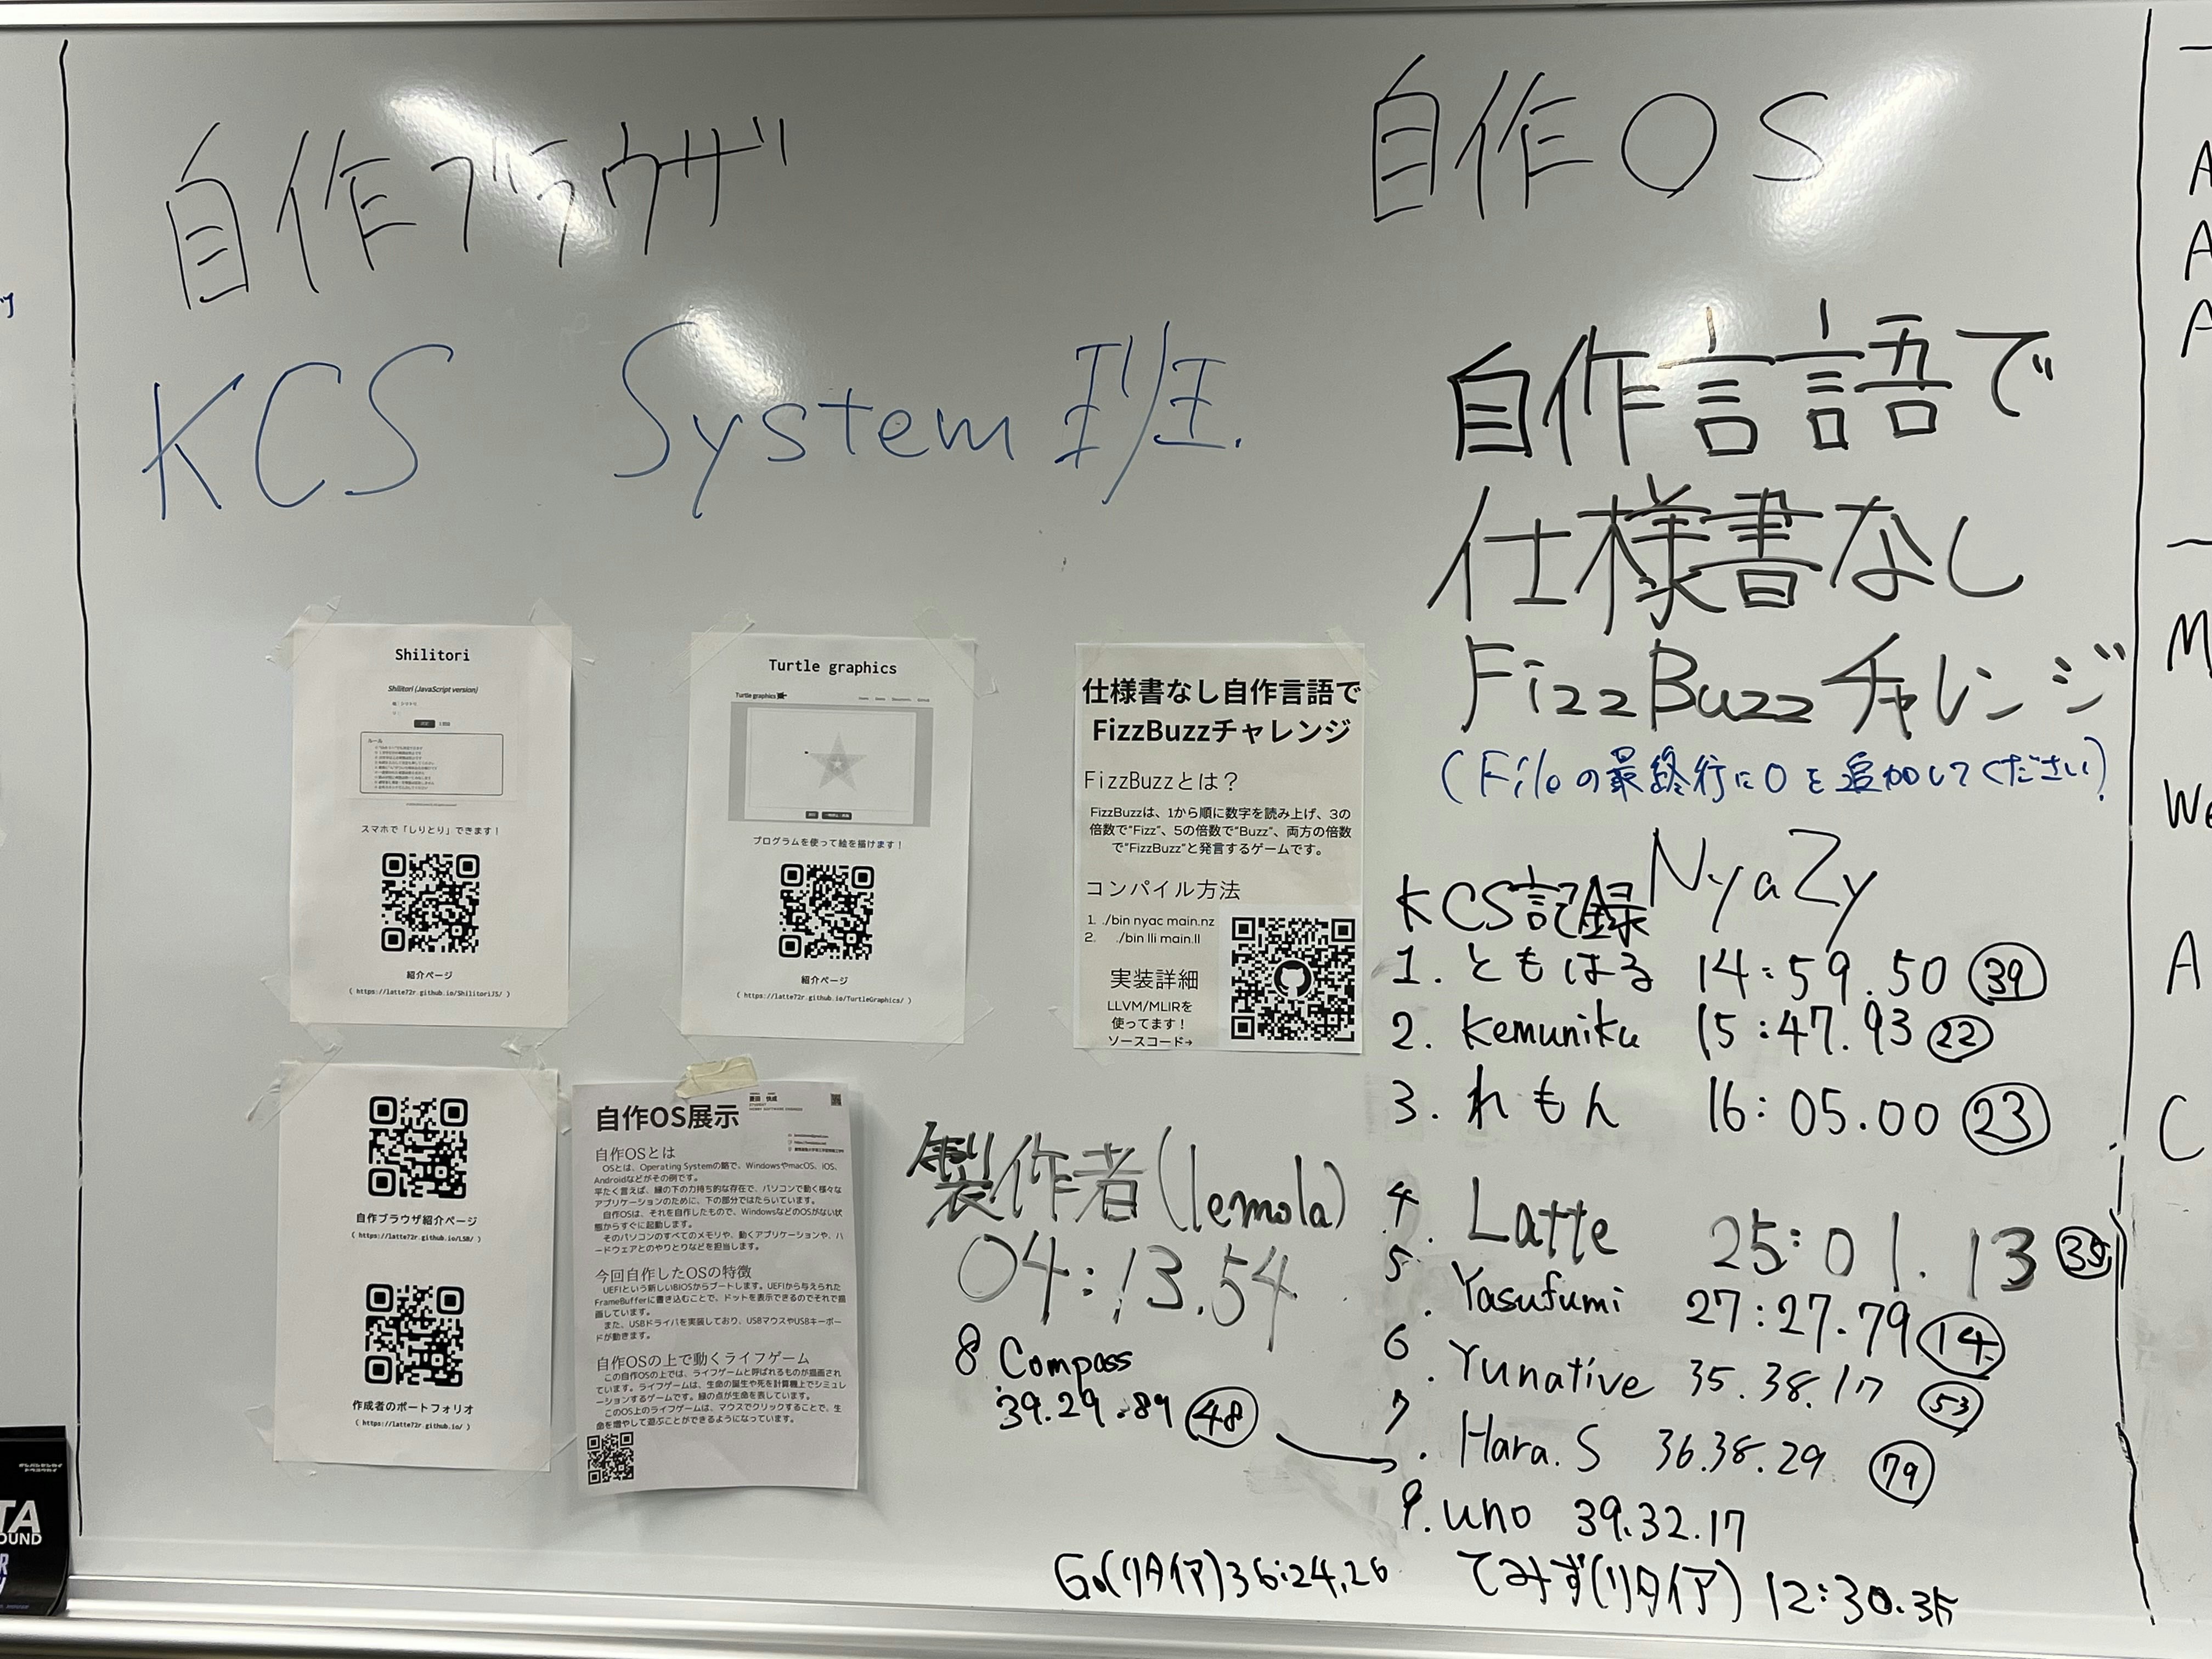 自作ブラウザ
自作OS
KCS System班.
自作言語で
仕様書なし
FizzBuzzチャレンジ
(Fileの最終行に0を追加してください)
NyaZy
KCS記録
1. ともはる 14:59.50 39
2. Kemuniku 15:47.93 22
3. れもん 16:05.00 23
4. Latte 25:01.13
5. Yasufumi 27:27.79 14
6. Yunative 35.38.17 53
7. Hara.S 36.38.29 79
9. uno 39.32.17
てみず(リタイア) 12:30.35
製作者(lemola)
04:13.54
8. Compass
39.29.89 48
Go(リタイア)36:24.26
Shilitori
Shilitori (JavaScript version)
ルール
スマホで「しりとり」できます!
紹介ページ
( https://latte72r.github.io/ShilitoriJS/ )
Turtle graphics
Turtle graphics
プログラムを使って絵を描けます!
紹介ページ
( https://latte72r.github.io/TurtleGraphics/ )
仕様書なし自作言語で
FizzBuzzチャレンジ
FizzBuzzとは?
FizzBuzzは、1から順に数字を読み上げ、3の
倍数で“Fizz”、5の倍数で“Buzz”、両方の倍数
で“FizzBuzz”と発言するゲームです。
コンパイル方法
1. ./bin nyac main.nz
2. ./bin lli main.ll
実装詳細
LLVM/MLIRを
使ってます!
ソースコード→
自作ブラウザ紹介ページ
( https://latte72r.github.io/LSB/ )
作成者のポートフォリオ
( https://latte72r.github.io/ )
自作OS展示
自作OSとは
OSとは、Operating Systemの略で、WindowsやmacOS、iOS、
Androidなどがその例です。
平たく言えば、縁の下の力持ち的な存在で、パソコンで動く様々な
アプリケーションのために、下の部分ではたらいています。
自作OSは、それを自作したもので、WindowsなどのOSがない状
態からすぐに起動します。
そのパソコンのすべてのメモリや、動くアプリケーションや、ハ
ードウェアとのやりとりなどを担当します。
今回自作したOSの特徴
UEFIという新しいBIOSからブートします。UEFIから与えられた
FrameBufferに書き込むことで、ドットを表示できるのでそれで描
画しています。
また、USBドライバを実装しており、USBマウスやUSBキーボー
ドが動きます。
自作OSの上で動くライフゲーム
この自作OSの上では、ライフゲームと呼ばれるものが描画され
ています。ライフゲームは、生命の誕生や死を計算機上でシミュレ
ーションするゲームです。緑の点が生命を表しています。
このOS上のライフゲームは、マウスでクリックすることで、生
命を増やして遊ぶことができるようになっています。